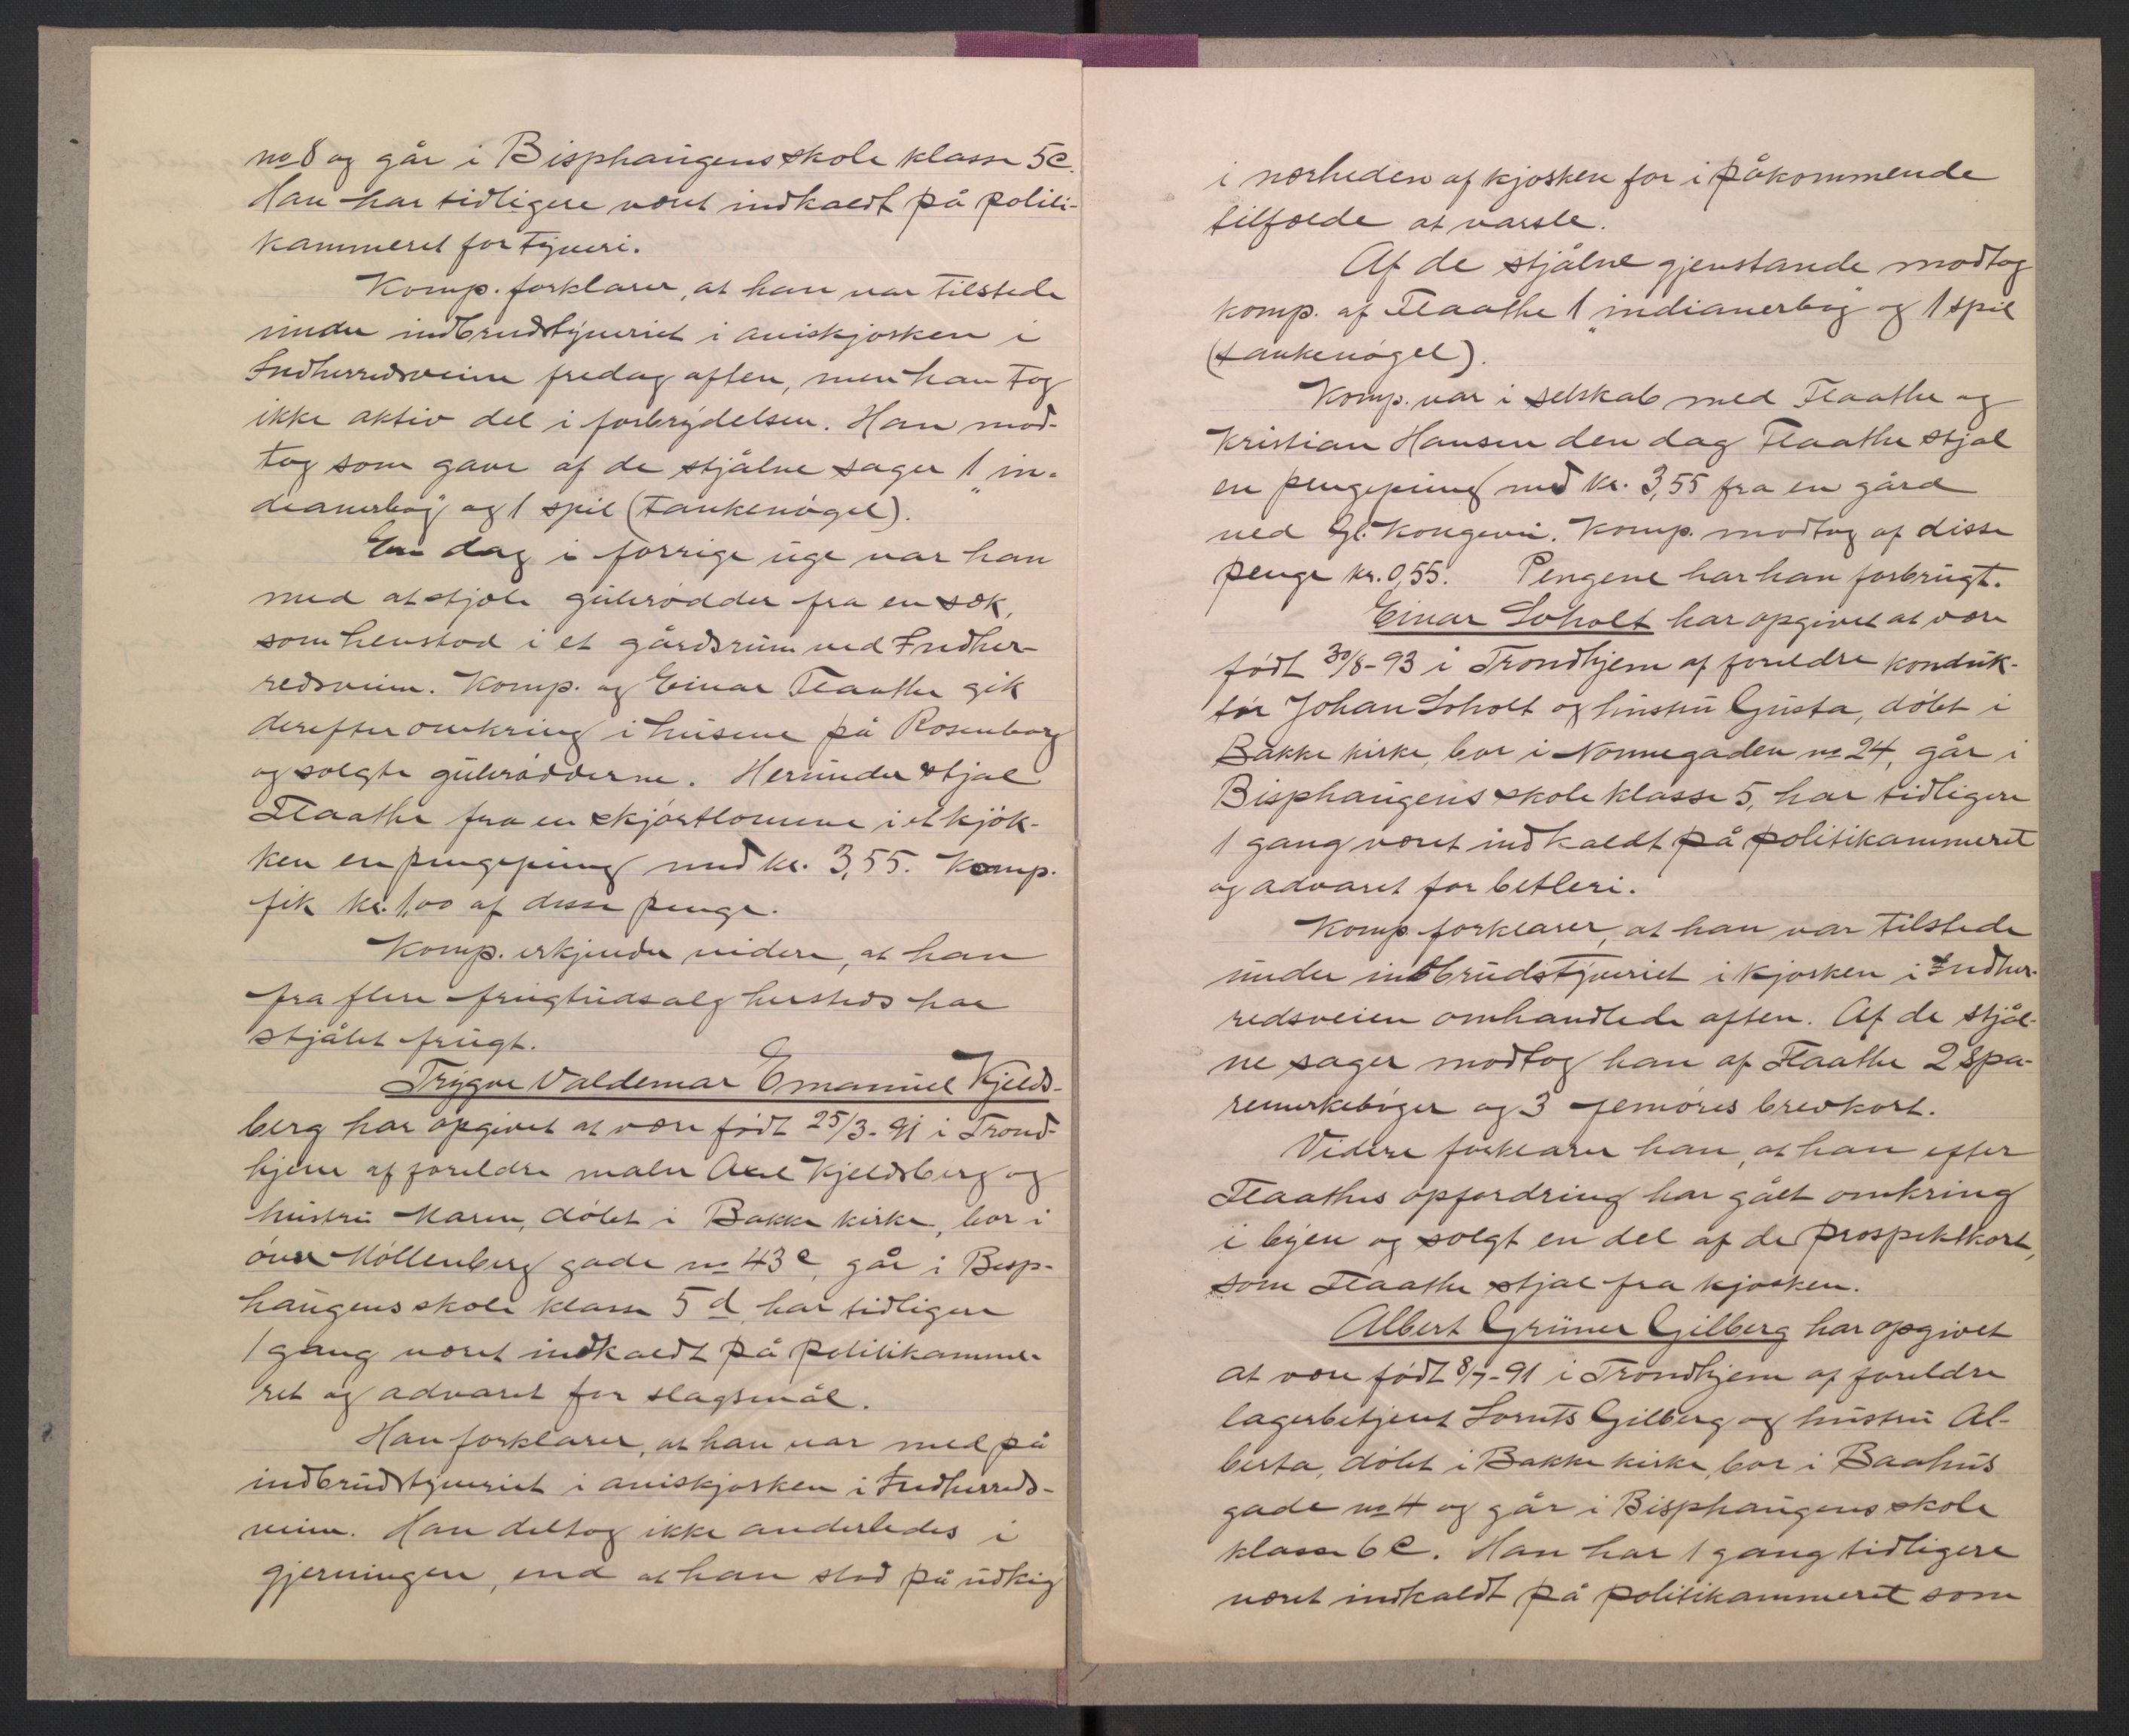 no 8 og går i Bisphaugens skole klasse 5c.
Han har tidligere været indkaldt på politi-
kammeret for tyveri.
Komp. forklarer, at han var tilstede
under indbrudstyveriet i aviskjosken i
Indherredsveien fredag aften, men han tog
ikke aktiv del i forbrydelsen. Han mod-
tog som gave af de stjålne sager 1 „in-
dianerbog" og 1 spil (tankenøgel).
En dag i forrige uge var han
med at stjæle gulerødder fra en sæk,
som henstod i et gårdsrum ved Indher-
redsveien. Komp. og Einar Flaathe gik
derefter omkring i husene på Rosenborg
og solgte gulerødderne. Herunder stjal
Flaathe fra en skjørtlomme i et kjøk-
ken en pengepung med kr. 3,55. Komp.
fik kr. 1,00 af disse penge.
Komp. erkjender videre, at han
fra flere frugtudsalg hersteds har
stjålet frugt.
Trygve Valdemar Emanuel Kjelds-
berg har opgivet at være født 25/3-91 i Trond-
hjem af forældre maler Axel Kjeldsberg og
hustru Maren, døbt i Bakke kirke, bor i
øvre Møllenberg gade no 43c, går i Bisp-
haugens skole klasse 5d, har tidligere
1 gang været indkaldt på politikamme-
ret og advaret for slagsmål.
Han forklarer, at han var med på
indbrudstyveriet i aviskjosken i Indherreds-
veien. Han deltog ikke anderledes i
gjerningen, end at han stod på udkig
i nærheden af kjosken for i påkommende
tilfælde at varsle.
Af de stjålne gjenstande modtog
komp. af Flaathe 1 „indianerbog" og 1 spil
(tankenøgel).
Komp. var i selskab med Flaathe og
Kristian Hansen den dag Flaathe stjal
en pengepung med kr. 3,55 fra en gård
ved Gl. Kongevei. Komp. modtog af disse
penge kr. 0,55. Pengene har han forbrugt.
Einar Soholt har opgivet at være
født 30/8-93 i Trondhjem af forældre konduk-
tør Johan Soholt og hustru Gusta, døbt i
Bakke kirke, bor i Nonnegaden no 24, går i
Bisphaugens skole klasse 5, har tidligere
1 gang været indkaldt på politikammeret
og advaret for betleri.
Komp. forklarer, at han var tilstede
under indbrudstyveriet i kjosken i Indher-
redsveien omhandlede aften. Af de stjål-
ne sager modtog han af Flaathe 2 spa-
remerkebøger og 3 femøres brevkort.
Videre forklarer han, at han efter
Flaathes opfordring har gået omkring
i byen og solgt en del af de prospektkort,
som Flaathe stjal fra kjosken.
Albert Grüner Gilberg har opgivet
at være født 8/7-91 i Trondhjem af forældre
lagerbetjent Lornts Gilberg og hustru Al-
berta, døbt i Bakke kirke, bor i Baahus
gade no 4 og går i Bisphaugens skole
klasse 6c. Han har 1 gang tidligere
været indkaldt på politikammeret som